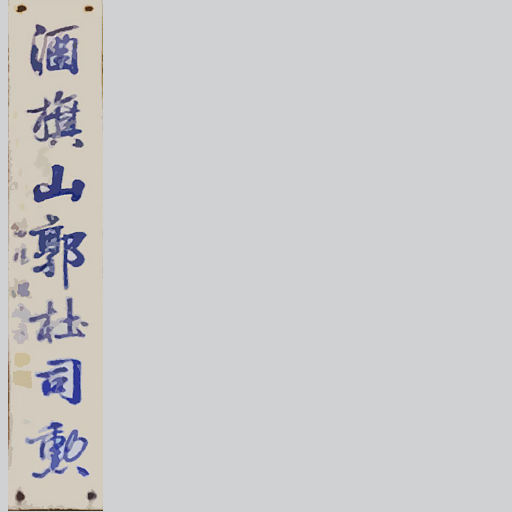 酒旗山郭杜司勳